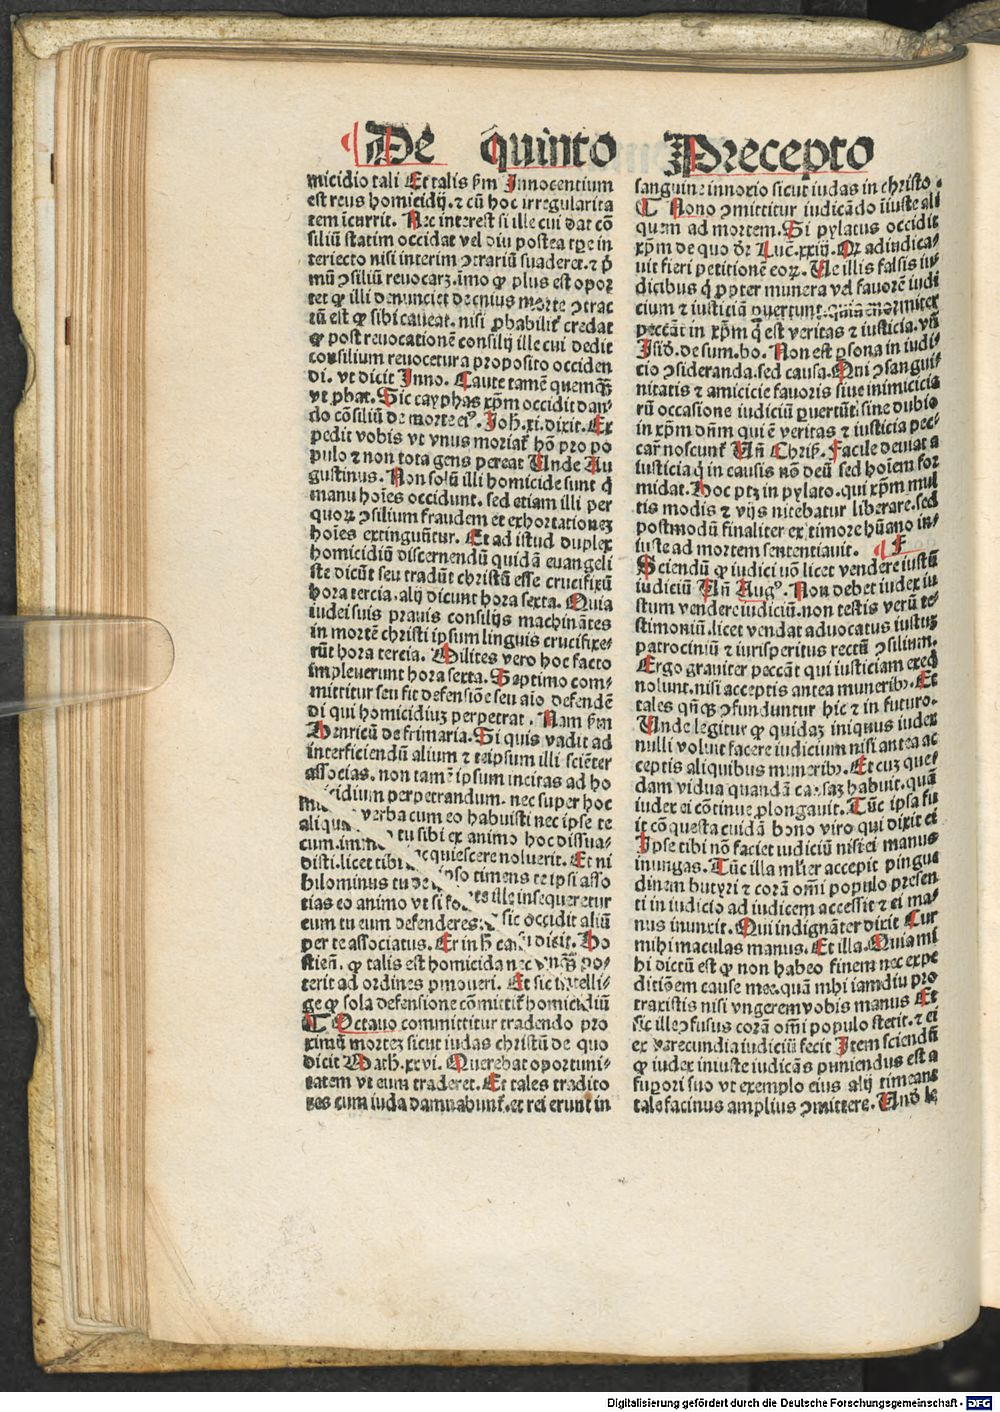 De quinto Precepto
micidio tali Et talis ẜm Innocentium
est reus homicidij. ⁊ cū hoc irregularita
tem ĩcurrit. Nec interest si ille cui dat cō
siliū statim occidat vel diu postea tꝑe in
teriecto nisi interim ꝯtrariū suaderet. ⁊ p̄
mū ꝯsiliū reuocarꝫ. īmo ꝙ plus est opor
tet ꝙ illi denunciet de cuius morte ꝯtrac
tū est ꝙ sibi caueat. nisi ꝓbabilit̉ credat
ꝙ post reuocationē consilij ille cui dedit
consilium reuocetur a proposito occiden
di. vt dicit Inno. Caute tamē quemꝗꝫ
vt ꝓbat. Sic cayphas xp̄m occidit dan/
do cōsiliū de morte eiꝰ. Joh̄. xi. dixit. Ex
pedit vobis vt vnus moriat̉ hō pro po
pulo ⁊ non tota gens pereat Unde Au
gustinus. Non solū illi homicide sunt q̇
manu hoīes occidunt. sed etiam illi per
quoꝝ ꝯsilium fraudem et exhortationeꝫ
hoīes extinguūtur. Et ad istud duplex
homicidiū discernendū quidā euangeli
ste dicūt seu tradūt christū esse crucifixū
hora tercia. alij dicunt hora sexta. Quia
iudei suis prauis consilijs machināntes
in mortē christi ipsum linguis crucifixe/
rūt hora tercia. Milites vero hoc facto
impleuerunt hora sexta. Septimo com/
mittitur seu fit defensiōe seu aĩo defendē
di qui homicidiuꝫ perpetrat. Nam ẜm
Henricū de frimaria. Si quis vadit ad
interficiendū alium ⁊ teipsum illi sciēter
associas. non tamē ipsum incitas ad ho
micidium perpetrandum. nec super hoc
aliqua verba cum eo habuisti nec ipse te
cum. immo tu sibi ex animo hoc dissua/
disti. licet tibi acquiescere noluerit. Et ni
hilominus tu de ipso timens te ipsi asso
cias eo animo vt si ille insequeretur
eum tu eum defenderes: sic occidit aliū
per te associatus. Er in h̄ casu dicit. Ho
stieñ. ꝙ talis est homicida nec vnꝗꝫ po/
terit ad ordines ꝓmoueri. Et sic intelli/
ge ꝙ sola defensione cōmittit̉ homicidiū
¶ Octauo committitur tradendo pro
ximū morteꝫ sicut iudas christū de quo
dicit Math̄. xxvi. Querebat oportuni/
tatem vt eum traderet. Et tales tradito
res cum iuda damnabunt̉. et rei erunt in
sanguine innoxio sicut iudas in christo.
¶ Nono ꝯmittitur iudicādo ĩiuste ali
quem ad mortem. Si pylatus occidit
xp̄m de quo dr̄ Luc̄. xxiij. Qꝛ adiudica/
uit fieri petitionē eoꝝ. Ue illis falsis iu/
dicibus q̇ ꝓpter munera vel fauorē iudi
cium ⁊ iusticiā ꝑuertunt. quia enormiter
peccāt in xp̄m q̇ est veritas ⁊ iusticia. vñ
Isid̄. de sum. bo. Non est ꝑsona in iudi/
cio ꝯsideranda. sed causa. Qui ꝯsangui/
nitatis ⁊ amicicie fauoris siue inimicicia
rū occasione iudiciū ꝑuertūt: sine dubio
in xp̄m dn̄m qui ē veritas ⁊ iusticia pec/
care noscunt̉ Uñ Chriẜ. Facile deuiat a
iusticia q̇ in causis nō deū sed hoīem for
midat. Hoc ptꝫ in pylato. qui xp̄m mul
tis modis ⁊ vijs nitebatur liberare. sed
postmodū finaliter ex timore hūano in/
iuste ad mortem sententiauit. F
Sciendū ꝙ iudici nō licet vendere iustū
iudiciū Uñ Augꝰ. Non debet iudex iu
stum vendere iudiciū. non testis verū te/
stimoniū. licet vendat aduocatus iustuꝫ
patrociniū ⁊ iurisperitus rectū ꝯsilium.
Ergo grauiter peccāt qui iusticiam exeq̇
nolunt. nisi acceptis antea muneribꝰ. Et
tales qn̄ꝗꝫ ꝯfunduntur hic ⁊ in futuro.
Unde legitur ꝙ quidaꝫ iniquus iudex
nulli voluit facere iudicium nisi antea ac
ceptis aliquibus muneribꝰ. Et cuꝫ que/
dam vidua quandā causaꝫ habuit. quā
iudex ei cōtinue ꝓlongauit. Tūc ipsa fu
it cō questa cuidā bono viro qui dixit ei
Ipse tibi nō faciet iudiciū nisi ei manus
inungas. Tūc illa ml̄ier accepit pingue
dinem butyri ⁊ corā om̄i populo presen
ti in iudicio ad iudicem accessit ⁊ ei ma/
nus inunxit. Qui indignāter dixit Cur
mihi maculas manus. Et illa. Quia mi
hi dictū est ꝙ non habeo finem nec expe
ditiōem cause mee. quā mhi iamdiu pro
traxistis nisi vngerem vobis manus Et
sic ille ꝯfusus corā om̄i populo stetit. ⁊ ei
ex verecundia iudiciū fecit Item sciendū
ꝙ iudex iniuste iudicās puniendus est a
supori suo vt exemplo eius alij timeant
tale facinus amplius ꝯmittere. Und̄ le
Digitalisierung gefördert durch die Deutsche Forschungsgemeinschaft - DFG